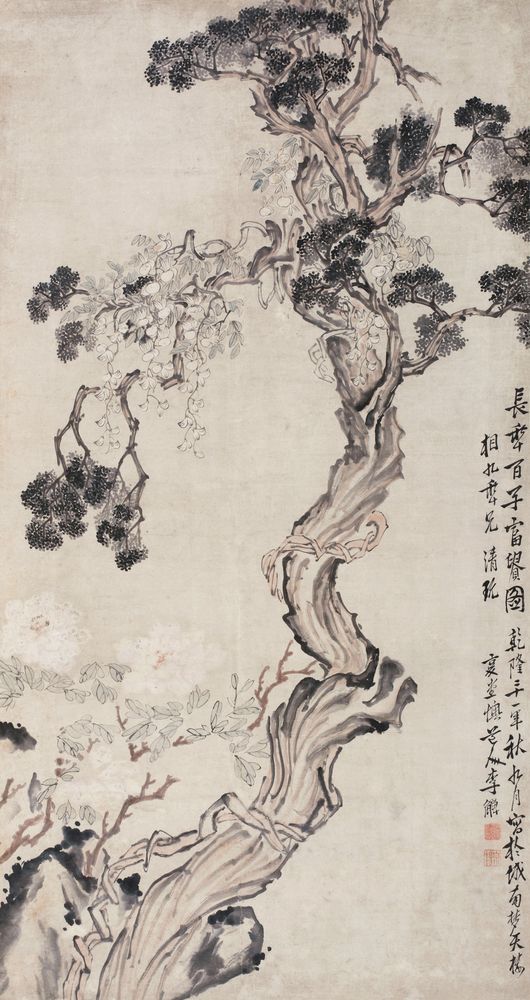 長年百子富貴圖
乾隆二十一年秋九月寫於城南天樓
相九年兄清玩
復堂懊道人李鱓